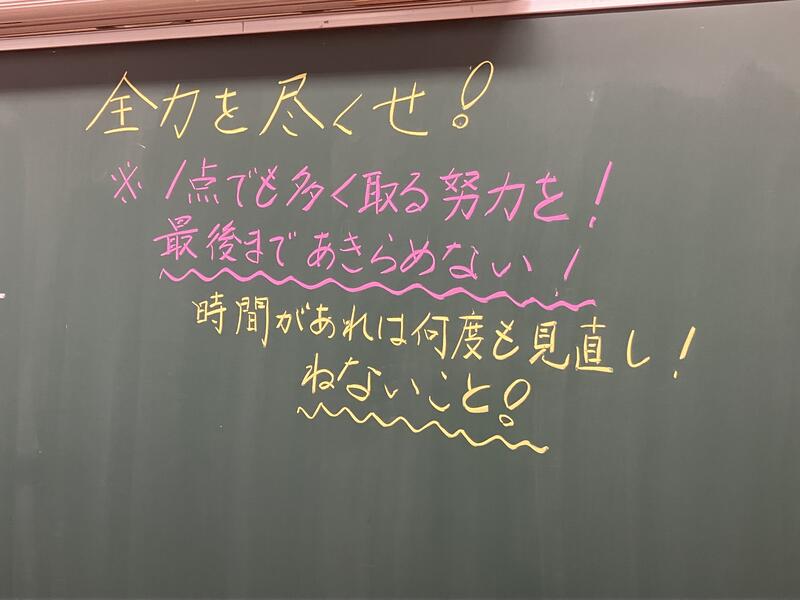 全力を尽くせ!
※1点でも多く取る努力を!
最後まであきらめない!
時間があれは何度も見直し!
ねないこと!